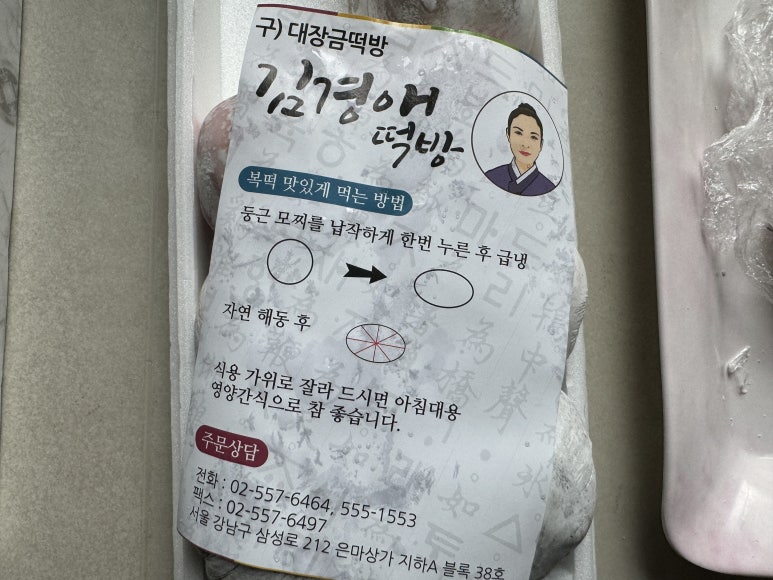 구) 대장금떡방
김경애
떡방
복떡 맛있게 먹는 방법
둥근 모찌를 납작하게 한번 누른 후 급냉
자연 해동 후
식용 가위로 잘라 드시면 아침대용
영양간식으로 참 좋습니다.
주문상담
전화 : 02-557-6464, 555-1553
팩스 : 02-557-6497
서울 강남구 삼성로 212 은마상가 지하A 블록 38호